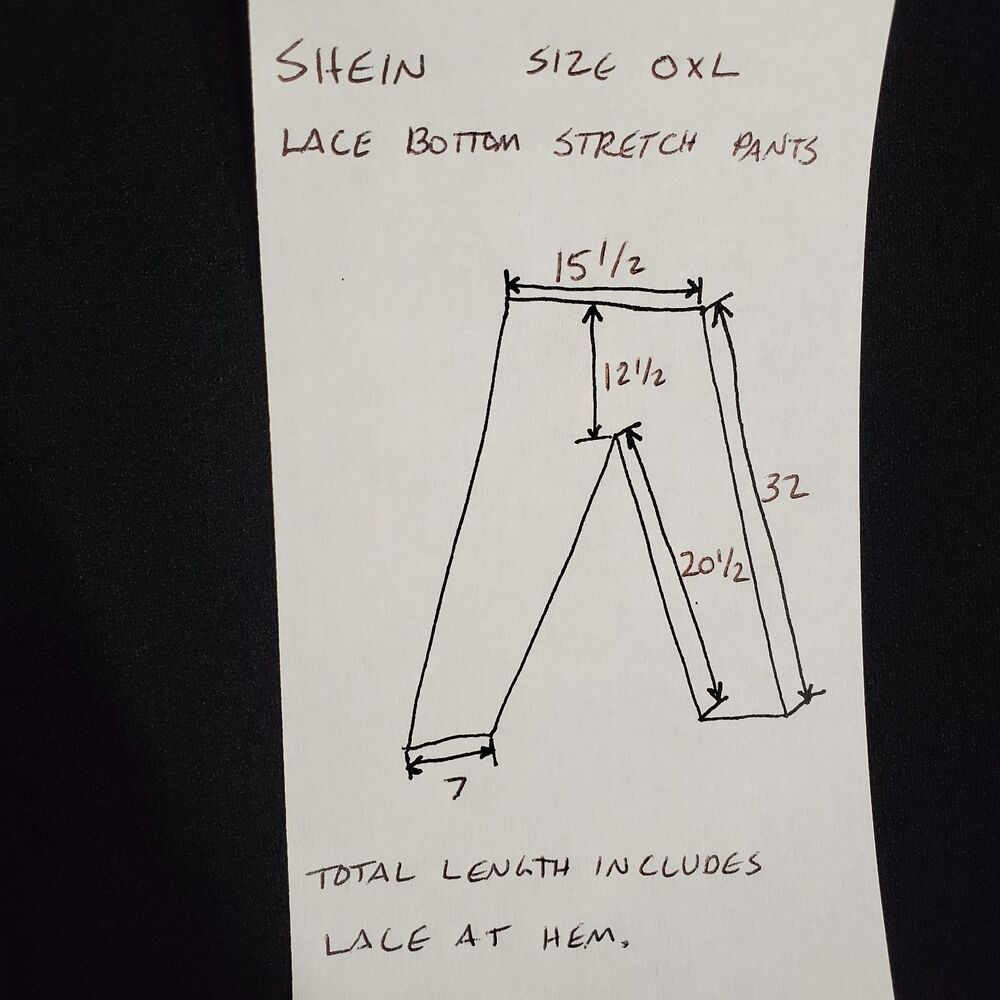 SHEIN SIZE 0XL
LACE BOTTOM STRETCH PANTS
15 1/2
12 1/2
32
20 1/2
7
TOTAL LENGTH INCLUDES
LACE AT HEM.